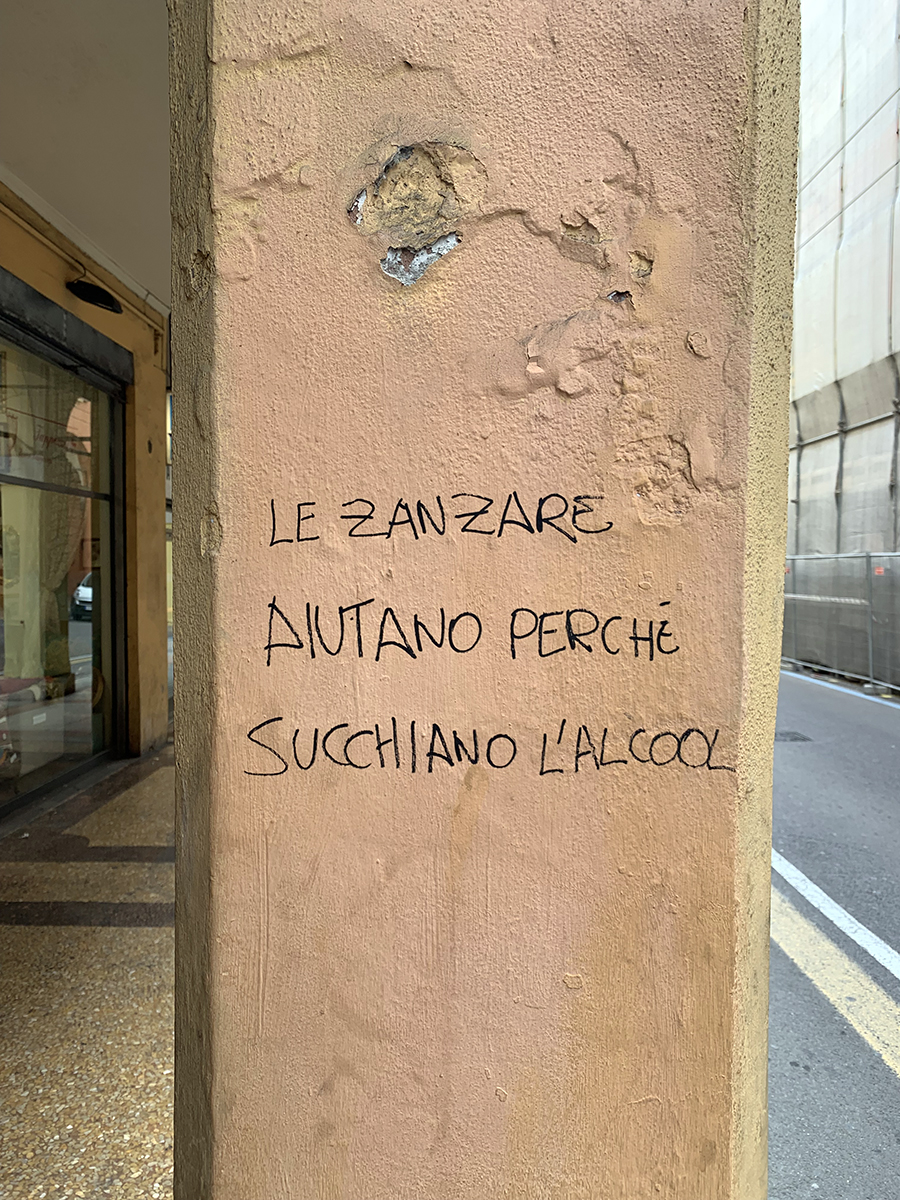 LE ZANZARE
AIUTANO PERCHÉ
SUCCHIANO L'ALCOOL